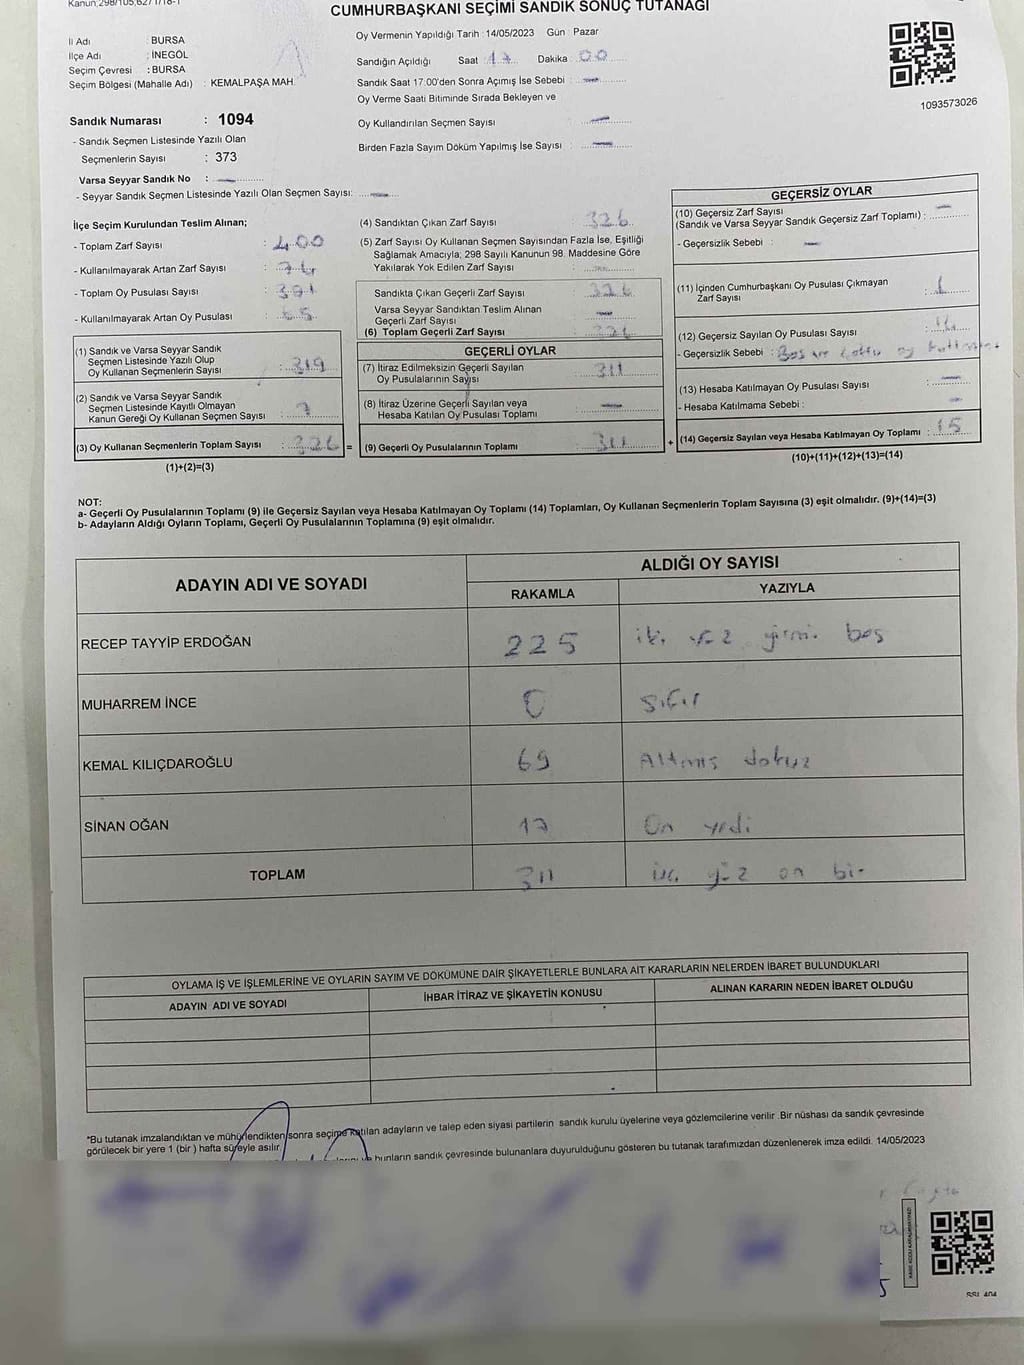 Kanun;298/105,627/1/18-1
CUMHURBAŞKANI SEÇİMİ SANDIK SONUÇ TUTANAĞI
İl Adı : BURSA
İlçe Adı : İNEGÖL
Seçim Çevresi : BURSA
Seçim Bölgesi (Mahalle Adı) : KEMALPAŞA MAH.
Oy Vermenin Yapıldığı Tarih : 14/05/2023 Gün : Pazar
Sandığın Açıldığı Saat : 17 Dakika : 00
Sandık Saat 17:00'den Sonra Açımış İse Sebebi : —
Oy Verme Saati Bitiminde Sırada Bekleyen ve
Oy Kullandırılan Seçmen Sayısı : —
Birden Fazla Sayım Döküm Yapılmış İse Sayısı : —
1093573026
Sandık Numarası : 1094
- Sandık Seçmen Listesinde Yazılı Olan
Seçmenlerin Sayısı : 373
Varsa Seyyar Sandık No : —
- Seyyar Sandık Seçmen Listesinde Yazılı Olan Seçmen Sayısı: —
İlçe Seçim Kurulundan Teslim Alınan;
- Toplam Zarf Sayısı : 400
- Kullanılmayarak Artan Zarf Sayısı : 74
- Toplam Oy Pusulası Sayısı : 391
- Kullanılmayarak Artan Oy Pusulası : 65
(1) Sandık ve Varsa Seyyar Sandık
Seçmen Listesinde Yazılı Olup
Oy Kullanan Seçmenlerin Sayısı : 319
(2) Sandık ve Varsa Seyyar Sandık
Seçmen Listesinde Kayıtlı Olmayan
Kanun Gereği Oy Kullanan Seçmen Sayısı : 7
(3) Oy Kullanan Seçmenlerin Toplam Sayısı : 326 =
(1)+(2)=(3)
(4) Sandıktan Çıkan Zarf Sayısı : 326
(5) Zarf Sayısı Oy Kullanan Seçmen Sayısından Fazla İse, Eşitliği
Sağlamak Amacıyla; 298 Sayılı Kanunun 98. Maddesine Göre
Yakılarak Yok Edilen Zarf Sayısı : —
Sandıkta Çıkan Geçerli Zarf Sayısı : 326
Varsa Seyyar Sandıktan Teslim Alınan
Geçerli Zarf Sayısı : —
(6) Toplam Geçerli Zarf Sayısı : 326
GEÇERLİ OYLAR
(7) İtiraz Edilmeksizin Geçerli Sayılan
Oy Pusulalarının Sayısı : 311
(8) İtiraz Üzerine Geçerli Sayılan veya
Hesaba Katılan Oy Pusulası Toplamı : —
(9) Geçerli Oy Pusulalarının Toplamı : 311 +
GEÇERSİZ OYLAR
(10) Geçersiz Zarf Sayısı
(Sandık ve Varsa Seyyar Sandık Geçersiz Zarf Toplamı) : —
- Geçersizlik Sebebi : —
(11) İçinden Cumhurbaşkanı Oy Pusulası Çıkmayan
Zarf Sayısı : 1
(12) Geçersiz Sayılan Oy Pusulası Sayısı : 14
- Geçersizlik Sebebi : Boş ve oy
(13) Hesaba Katılmayan Oy Pusulası Sayısı : —
- Hesaba Katılmama Sebebi : —
(14) Geçersiz Sayılan veya Hesaba Katılmayan Oy Toplamı : 15
(10)+(11)+(12)+(13)=(14)
NOT:
a- Geçerli Oy Pusulalarının Toplamı (9) ile Geçersiz Sayılan veya Hesaba Katılmayan Oy Toplamı (14) Toplamları, Oy Kullanan Seçmenlerin Toplam Sayısına (3) eşit olmalıdır. (9)+(14)=(3)
b- Adayların Aldığı Oyların Toplamı, Geçerli Oy Pusulalarının Toplamına (9) eşit olmalıdır.
ADAYIN ADI VE SOYADI
ALDIĞI OY SAYISI
RAKAMLA YAZIYLA
RECEP TAYYİP ERDOĞAN 225 iki yüz yirmi beş
MUHARREM İNCE 0 Sıfır
KEMAL KILIÇDAROĞLU 69 Altmış dokuz
SİNAN OĞAN 17 On yedi
TOPLAM 311 üç yüz on bir
OYLAMA İŞ VE İŞLEMLERİNE VE OYLARIN SAYIM VE DÖKÜMÜNE DAİR ŞİKAYETLERLE BUNLARA AİT KARARLARIN NELERDEN İBARET BULUNDUKLARI
ADAYIN ADI VE SOYADI İHBAR İTİRAZ VE ŞİKAYETİN KONUSU ALINAN KARARIN NEDEN İBARET OLDUĞU
*Bu tutanak imzalandıktan ve mühürlendikten sonra seçime katılan adayların ve talep eden siyasi partilerin sandık kurulu üyelerine veya gözlemcilerine verilir .Bir nüshası da sandık çevresinde
görülecek bir yere 1 (bir ) hafta süreyle asılır.
bunların sandık çevresinde bulunanlara duyurulduğunu gösteren bu tutanak tarafımızdan düzenlenerek imza edildi. 14/05/2023